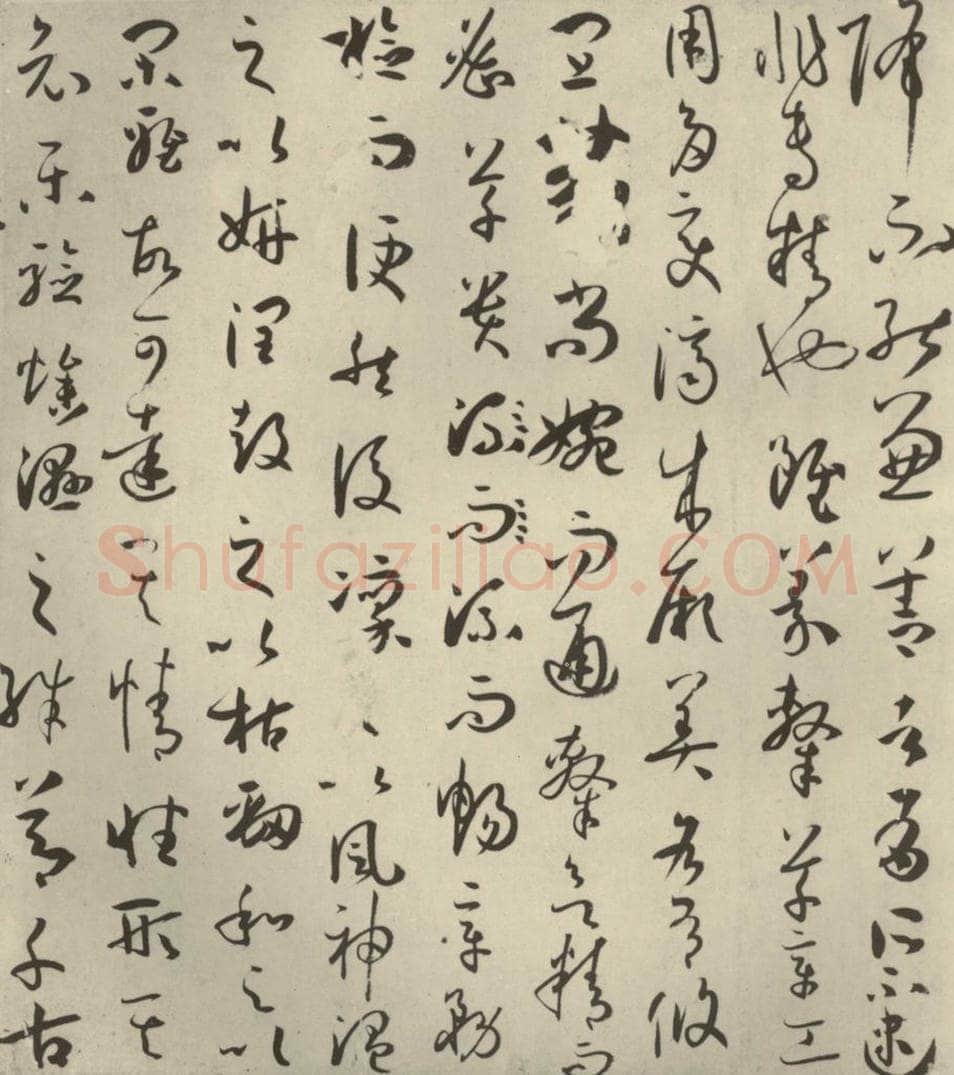 降不能兼善者有所不逮
非專精也雖篆隸草章工
用多變濟成厥美各有攸
宜篆尚婉而通隸欲精而
密草貴流而流而暢章務
檢而便然後凜之以風神溫
之以妍潤鼓之以枯勁和之以
閑雅故可達其情性形其
哀樂驗燥濕之殊節千古
Shufaziliao.COM